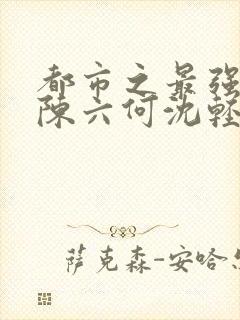 都市之最强
陈六何沈轻
萨克森-安哈